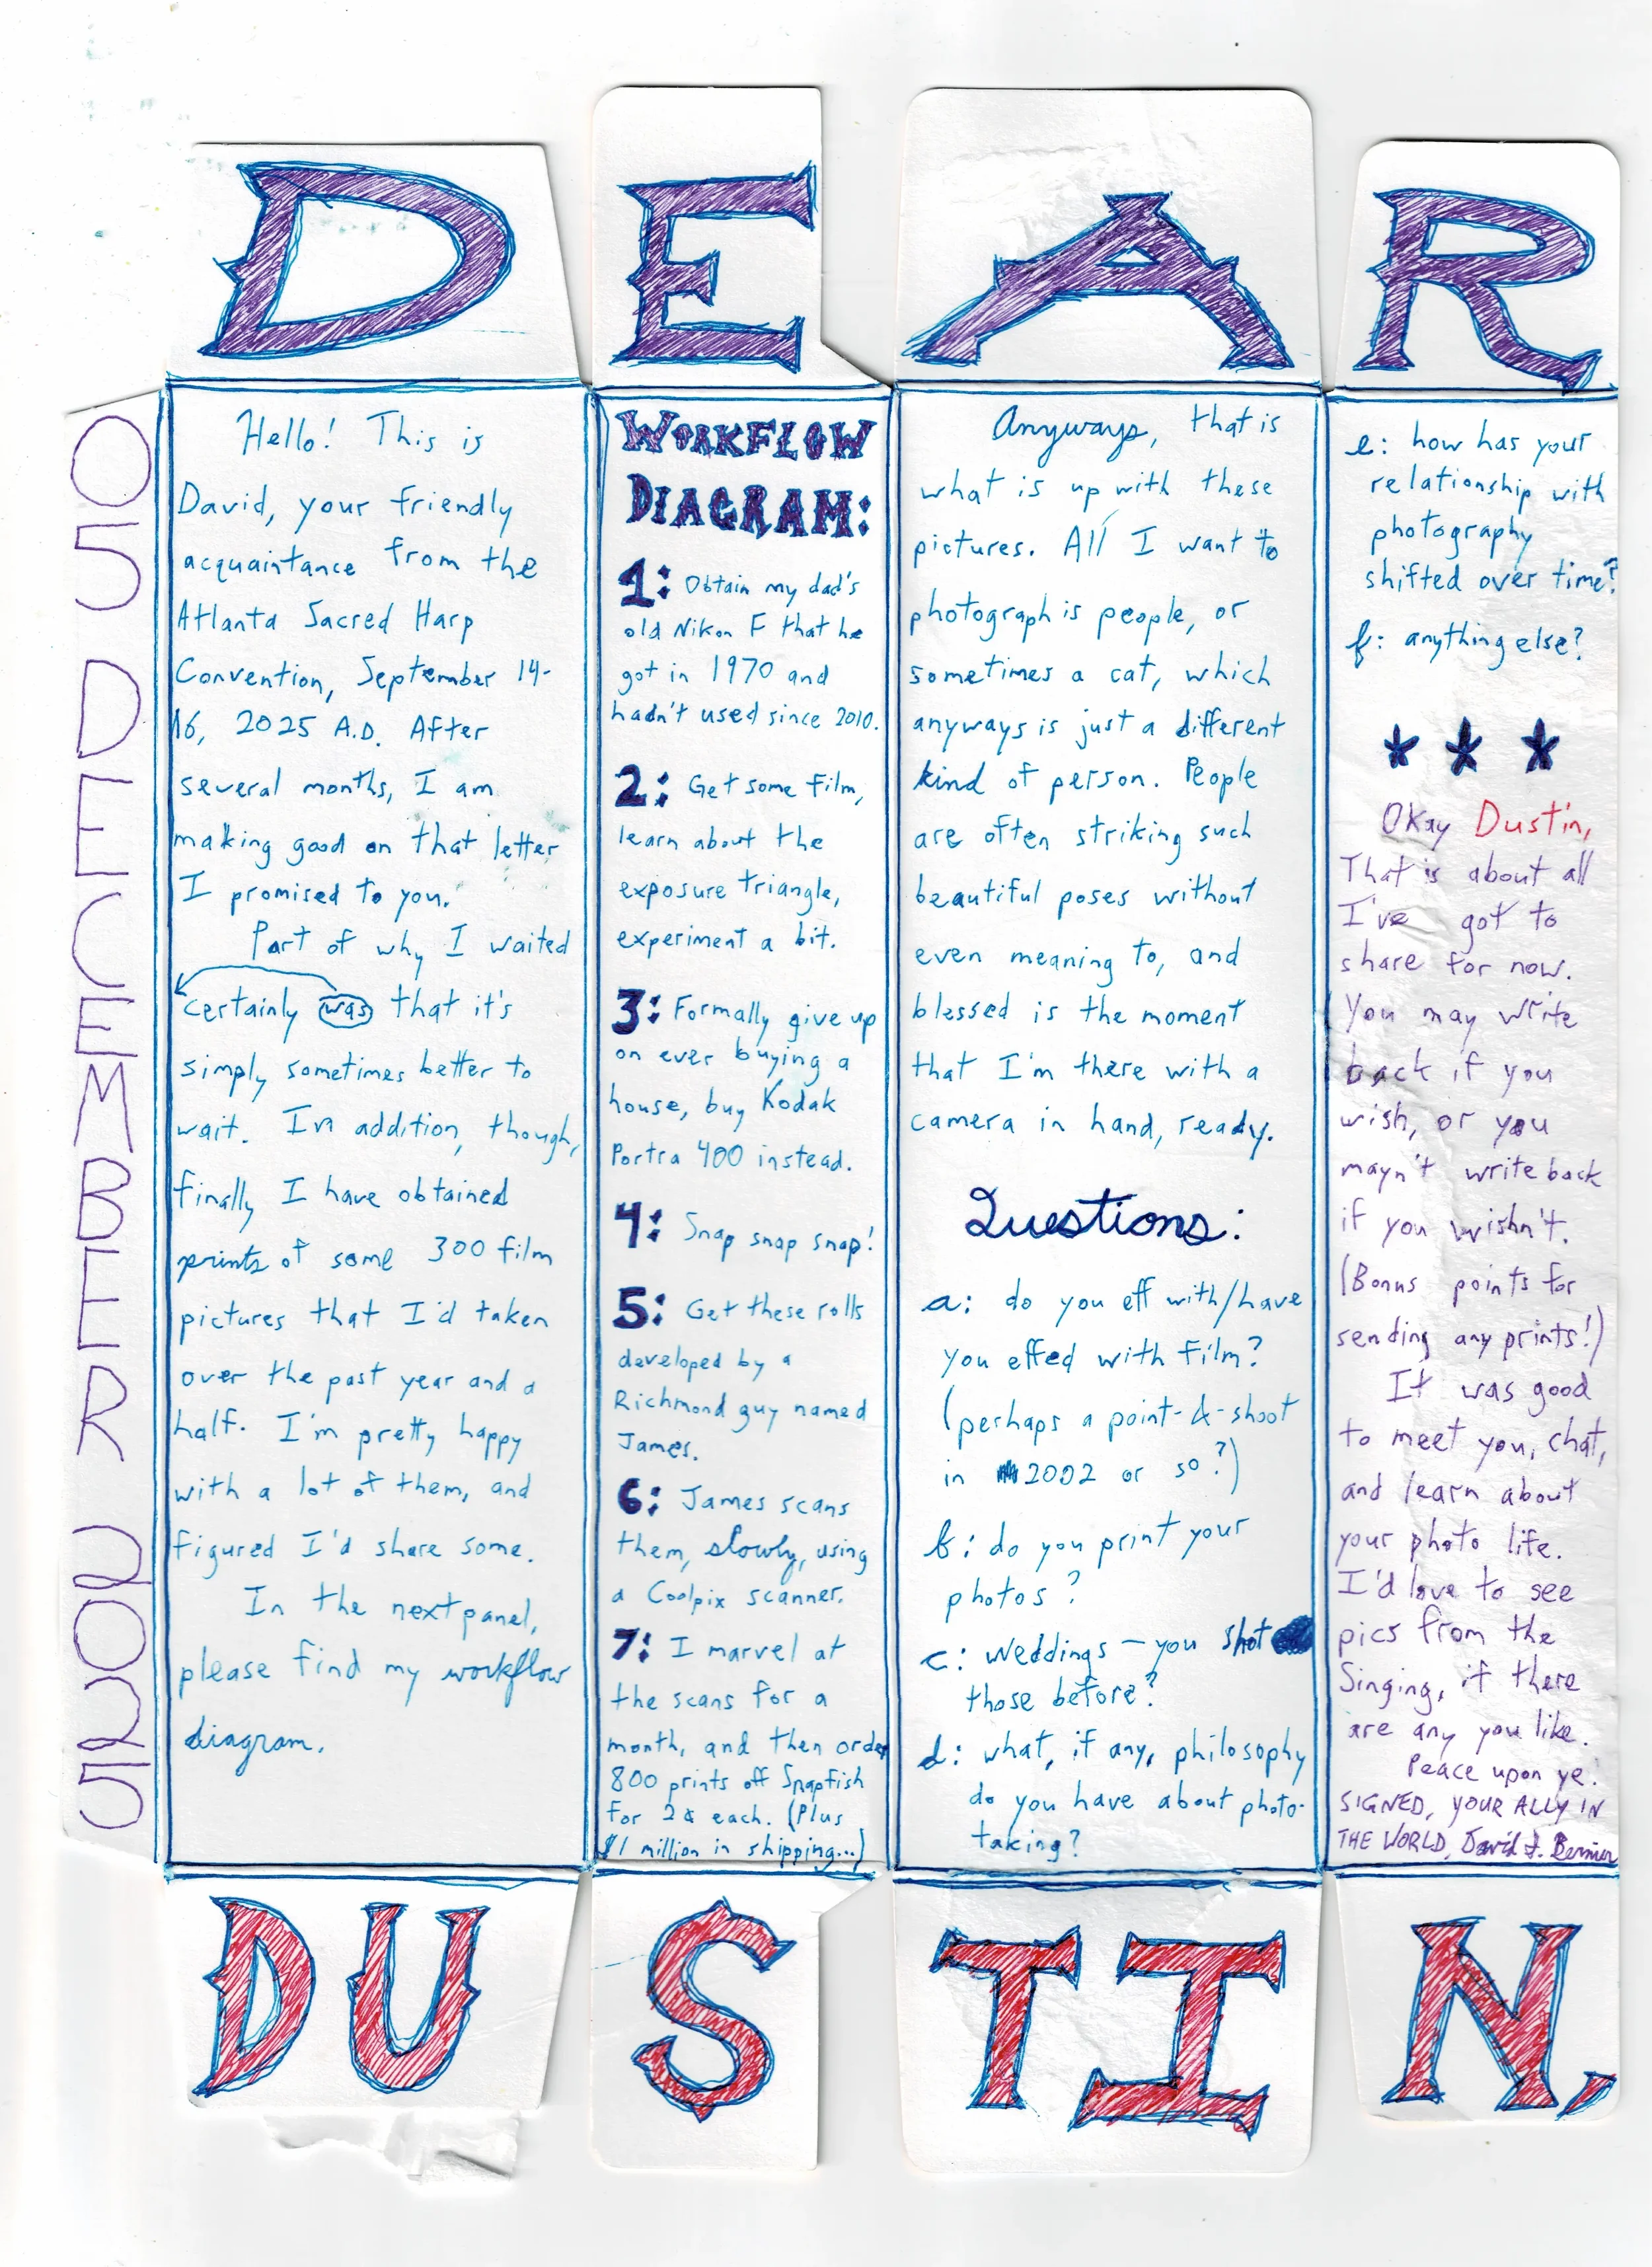 DEAR
05 DECEMBER 2025
Hello! This is
David, your friendly
acquaintance from the
Atlanta Sacred Harp
Convention, September 14-
16, 2025 A.D. After
several months, I am
making good on that letter
I promised to you.
Part of why I waited
certainly was that it's
simply sometimes better to
wait. In addition, though,
finally I have obtained
prints of some 300 film
pictures that I'd taken
over the past year and a
half. I'm pretty happy
with a lot of them, and
figured I'd share some.
In the next panel,
please find my workflow
diagram.
WORKFLOW
DIAGRAM:
1: Obtain my dad's
old Nikon F that he
got in 1970 and
hadn't used since 2010.
2: Get some film,
learn about the
exposure triangle,
experiment a bit.
3: Formally give up
on ever buying a
house, buy Kodak
Portra 400 instead.
4: Snap snap snap!
5: Get these rolls
developed by a
Richmond guy named
James.
6: James scans
them, slowly, using
a Coolpix scanner.
7: I marvel at
the scans for a
month, and then order
800 prints off Snapfish
for 2¢ each. (Plus
$1 million in shipping...)
Anyways, that is
what is up with these
pictures. All I want to
photograph is people, or
sometimes a cat, which
anyways is just a different
kind of person. People
are often striking such
beautiful poses without
even meaning to, and
blessed is the moment
that I'm there with a
camera in hand, ready.
Questions:
a: do you eff with/have
you effed with film?
(perhaps a point-&-shoot
in 2002 or so?)
b: do you print your
photos?
c: weddings – you shot
those before?
d: what, if any, philosophy
do you have about photo-
taking?
e: how has your
relationship with
photography
shifted over time?
f: anything else?
* * *
Okay Dustin,
That is about all
I've got to
share for now.
You may write
back if you
wish, or you
mayn't write back
if you wishn't.
(Bonus points for
sending any prints!)
It was good
to meet you, chat,
and learn about
your photo life.
I'd love to see
pics from the
Singing, if there
are any you like.
Peace upon ye.
SIGNED, YOUR ALLY IN
THE WORLD, David J. Bernier
DUSTIN,